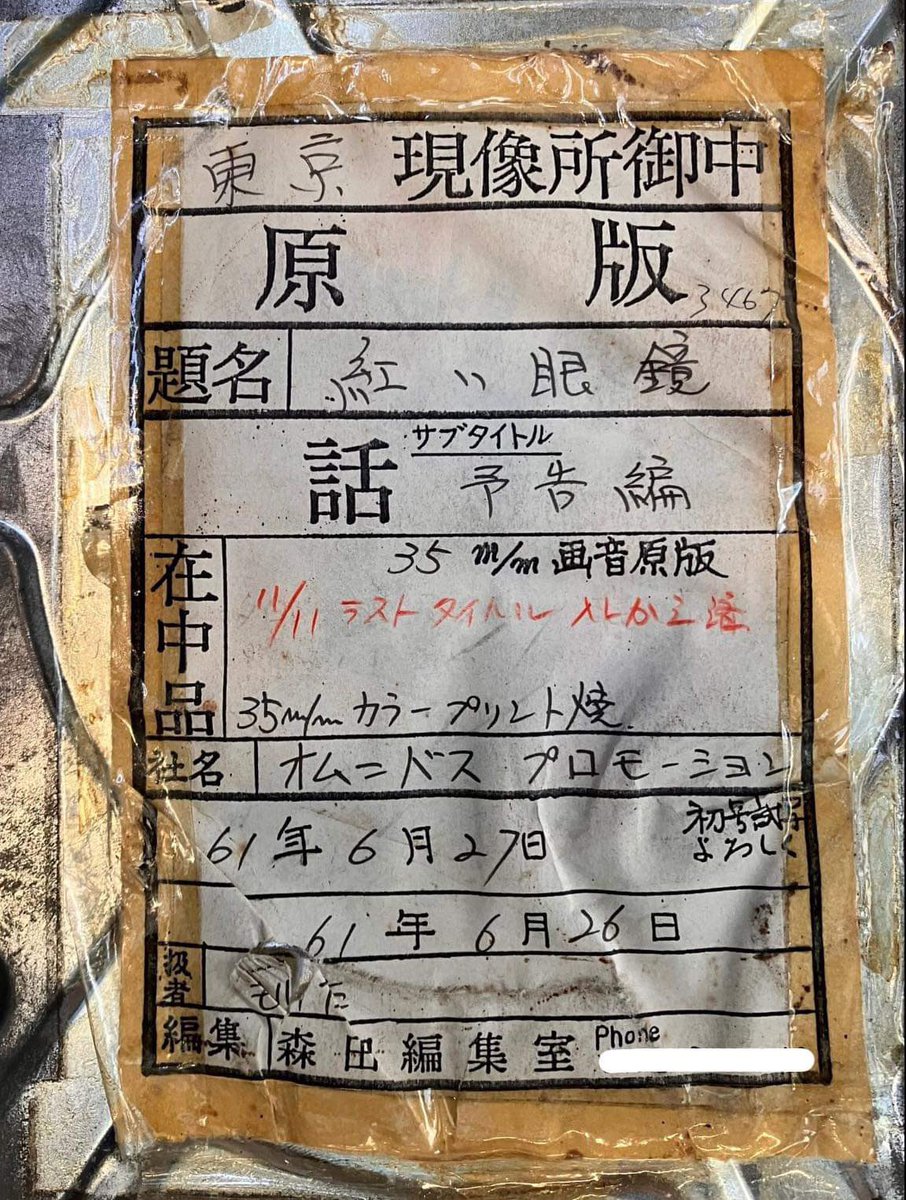 東京 現像所御中
原版
3467
題名 紅い眼鏡
話 サブタイトル
予告編
在中品
35 m/m 画音原版
11/11 ラストタイトル 入レかえ済
35m/m カラープリント焼
社名 オムニバス プロモーション
61年6月27日
初号試写
よろしく
61年6月26日
扱者
編集 森田編集室 Phone